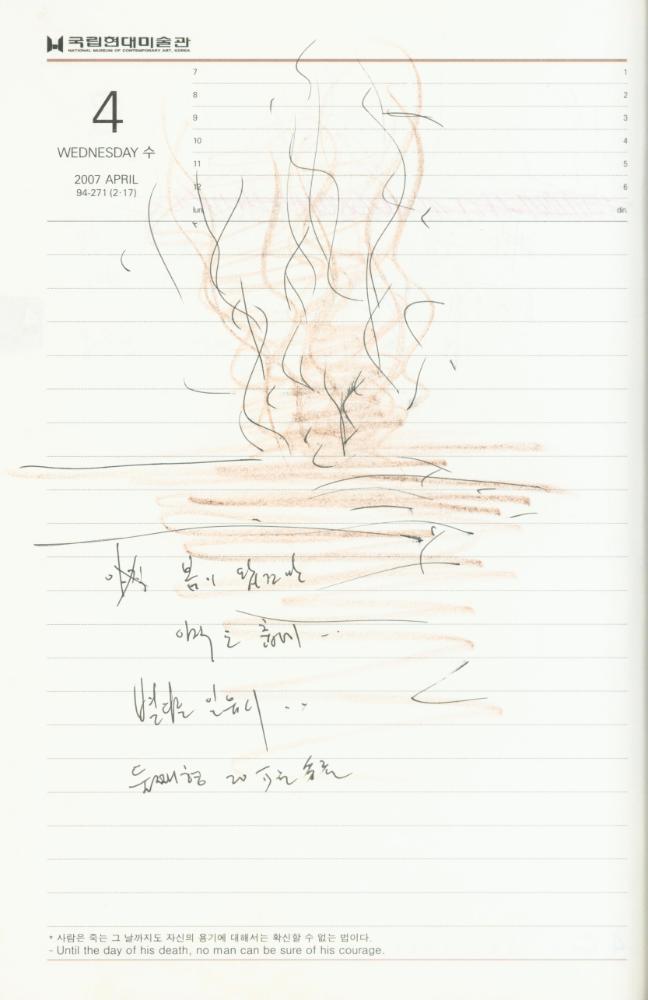 국립현대미술관
NATIONAL MUSEUM OF CONTEMPORARY ART, KOREA
4
WEDNESDAY 수
2007 APRIL
94-271 (2·17)
7 1
8 2
9 3
10 4
11 5
12 6
lun. din.
봄이 왔건만
아직도 춥네 ...
별다른 일 없이 ..
둘째형
* 사람은 죽는 그 날까지도 자신의 용기에 대해서는 확신할 수 없는 법이다.
- Until the day of his death, no man can be sure of his courage.